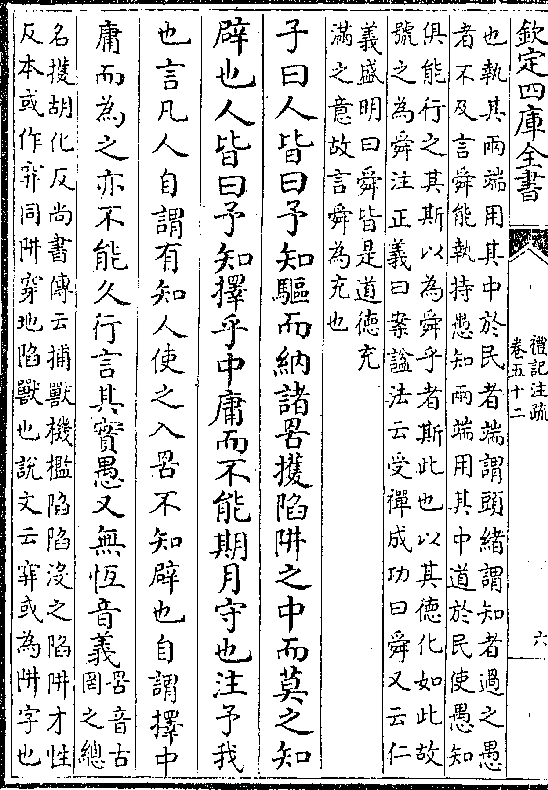 欽定四庫全書
禮記注疏
卷五十二
六
也執其兩端用其中於民者端謂頭緒謂知者過之愚
者不及言舜能執持愚知兩端用其中道於民使愚知
俱能行之其斯以為舜乎者斯此也以其德化如此故
號之為舜注正義曰案謚法云受禪成功曰舜又云仁
義盛明曰舜皆是道德充
滿之意故言舜為充也
子曰人皆曰予知驅而納諸罟擭陷阱之中而莫之知
辟也人皆曰予知擇乎中庸而不能期月守也注予我
也言凡人自謂有知人使之入罟不知辟也自謂擇中
庸而為之亦不能久行言其實愚又無恆音義罟音古
罔之總
名擭胡化反尚書傳云捕獸機檻陷陷沒之陷阱才性
反本或作穽同阱穿地陷獸也說文云穽或為阱字也